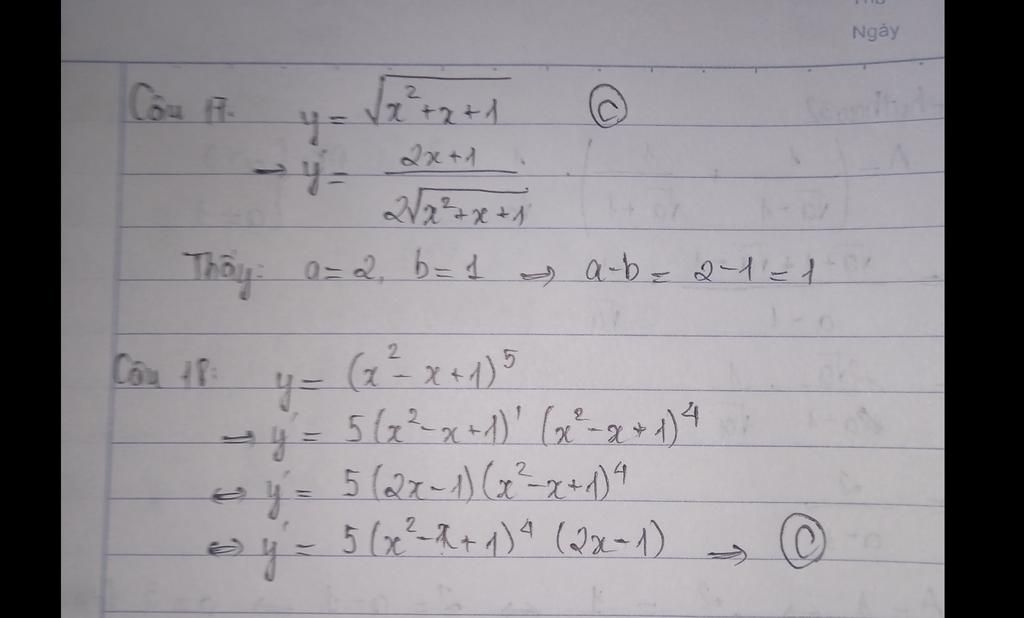 Ngày
Câu 17. y = √(x²+x+1) Ⓒ
→ y' = (2x+1)/(2√(x²+x+1))
Thấy: a=2, b=1 ⇒ a-b = 2-1 = 1
Câu 18: y = (x²-x+1)⁵
→ y' = 5(x²-x+1)' (x²-x+1)⁴
⇔ y' = 5(2x-1)(x²-x+1)⁴
⇔ y' = 5(x²-x+1)⁴ (2x-1) ⇒ Ⓒ